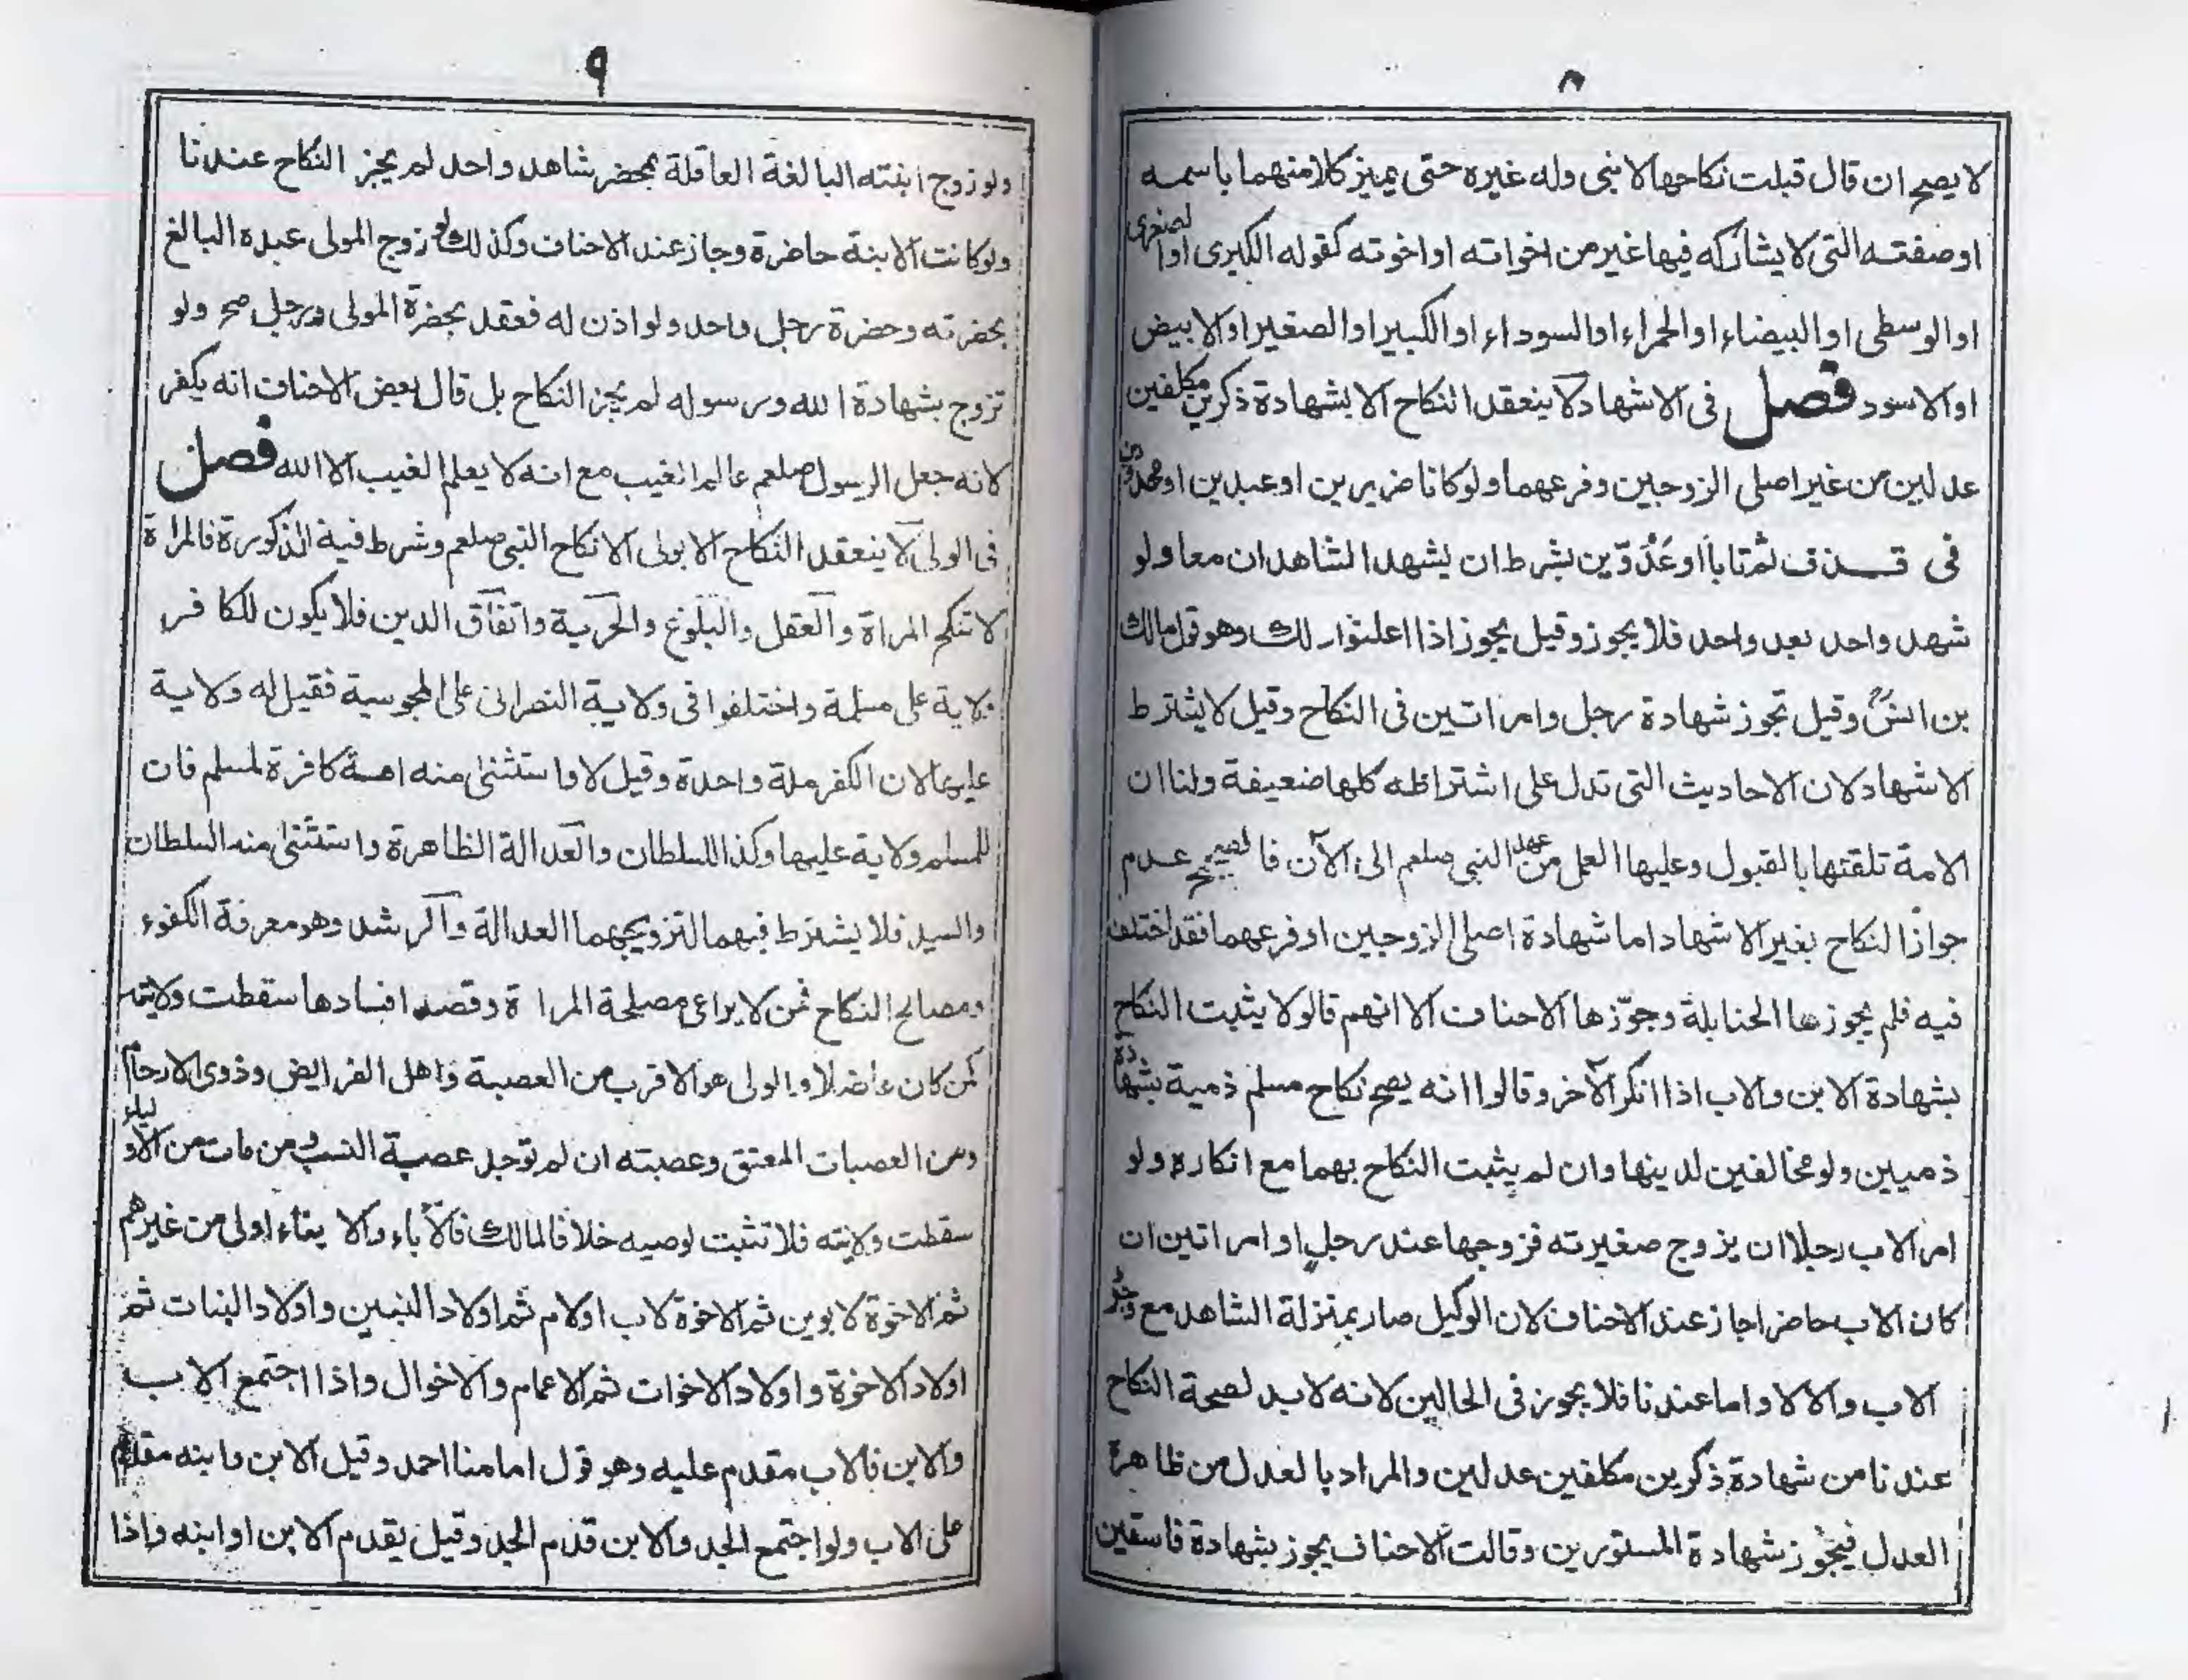 ٨
لا يصح ان قال قبلت نكاحها لا بنى وله غيره حتى يميز كلا منهما باسمه
اوصفته التى لا يشاركه فيها غير من اخواته او اخوته كقوله الكبرى او الصغرى
او الوسطى او البيضاء او الحمراء او السوداء او الكبير او الصغير او الابيض
او الاسود فصل فى الاشهاد لا ينعقد النكاح الا بشهادة ذكرين مكلفين
عدلين من غير اصلى الزوجين وفرعهما ولو كانا ضريرين او عبدين او محدودين
فى قذف ثم تابا او عَدُوّين بشرط ان يشهد الشاهدان معا ولو
شهد واحد بعد واحد فلا يجوز وقيل يجوز اذا اعلنوا ذلك وهو قول مالك
بن انس وقيل تجوز شهادة رجل وامراتين فى النكاح وقيل لا يشترط
الاشهاد لان الاحاديث التى تدل على اشتراطه كلها ضعيفة ولنا ان
الامة تلقتها بالقبول وعليها العمل من عهد النبى صلعم الى الآن فالصحيح عدم
جواز النكاح بغير الاشهاد اما شهادة اصلى الزوجين او فرعهما فقد اختلف
فيه فلم يجوزها الحنابلة وجوّزها الاحناف الا انهم قالو لا يثبت النكاح
بشهادة الابن والاب اذا انكر الآخر وقالوا انه يصح نكاح مسلم ذمية بشهادة
ذميين ولو مخالفين لدينها وان لم يثبت النكاح بهما مع انكاره ولو
امر الاب رجلا ان يزوج صغيرته فزوجها عند رجل او امراتين ان
كان الاب حاضرا جاز عند الاحناف لان الوكيل صار بمنزلة الشاهد مع وجود
الاب والا لا واما عندنا فلا يجوز فى الحالين لانه لا بد لصحة النكاح
عندنا من شهادة ذكرين مكلفين عدلين والمراد بالعدل من ظاهره
العدل فيجوز شهادة المستورين وقالت الاحناف يجوز بشهادة فاسقين
٩
ولو زوج ابنته البالغة العاقلة بمحضر شاهد واحد لم يجز النكاح عندنا
ولو كانت الابنة حاضرة وجاز عند الاحناف وكذلك لو زوج المولى عبده البالغ
بحضرته وحضرة رجل واحد ولو اذن له فعقد بحضرة المولى ورجل صح ولو
تزوج بشهادة الله ورسوله لم يجز النكاح بل قال بعض الاحناف انه يكفر
لانه جعل الرسول صلعم عالم الغيب مع انه لا يعلم الغيب الا الله فصل
فى الولى لا ينعقد النكاح الا بولى الا نكاح النبى صلعم وشرط فيه الذكورة فالمراة
لا تنكح المراة والعقل والبلوغ والحرية واتفاق الدين فلا يكون للكافر
ولاية على مسلمة واختلفوا فى ولاية النصرانى على المجوسية فقيل له ولاية
عليها لان الكفر ملة واحدة وقيل لا واستثنى منه امة كافرة لمسلم فان
للمسلم ولاية عليها وكذا السلطان والعدالة الظاهرة واستثنى منه السلطان
والسيد فلا يشترط فيهما لتزويجهما العدالة والرشد وهو معرفة الكفوء
ومصالح النكاح فمن لا يراعى مصلحة المراة وقصد افسادها سقطت ولايته
كمن كان عاضلا والولى هو الاقرب من العصبة واهل الفرايض وذوى الارحام
ومن العصبات المعتق وعصبته ان لم توجد عصبة النسب ومن مات من الاولياء
سقطت ولايته فلا تثبت لوصيه خلافا لمالك فالآباء والابناء اولى من غيرهم
ثم الاخوة لابوين ثم الاخوة لاب او لام ثم اولاد البنين واولاد البنات ثم
اولاد الاخوة واولاد الاخوات ثم الاعمام والاخوال واذا اجتمع الاب
والابن فالاب مقدم عليه وهو قول امامنا احمد وقيل الابن وابنه مقدم
على الاب ولو اجتمع الجد والابن قدم الجد وقيل يقدم الابن او ابنه واذا